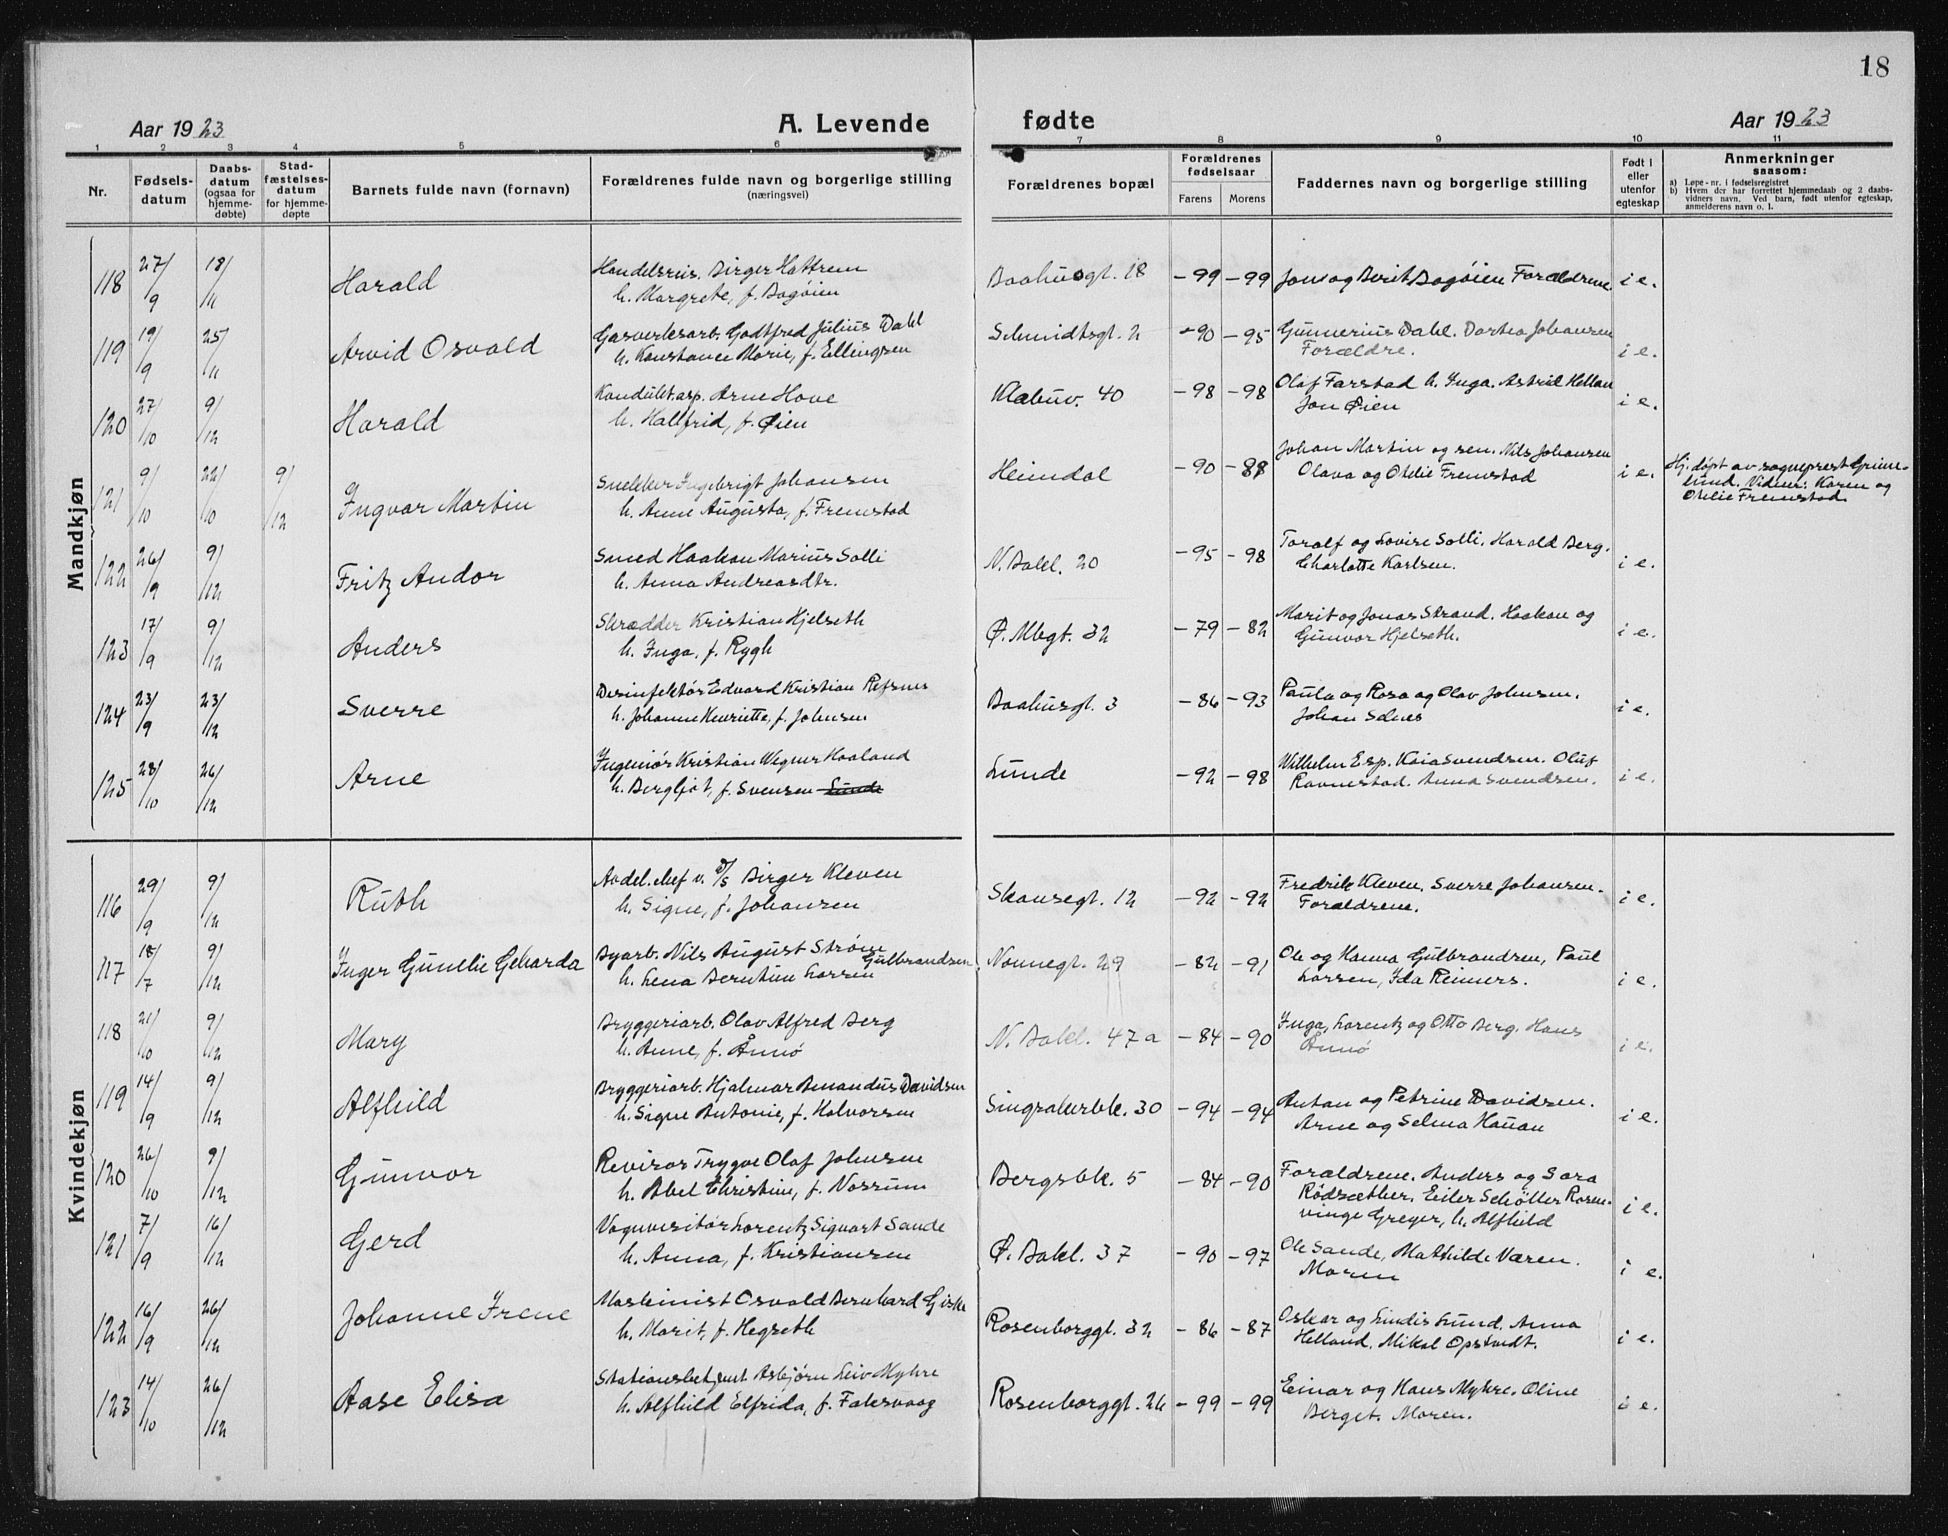 18
Aar 1923
A. Levende
fødte
Aar 1923
1 2 3 4 5 6 7 8 9 10 11
Nr.
Fødsels-
datum
Daabs-
datum
(ogsaa for
hjemme-
døbte)
Stad-
fæstelses-
datum
for hjemme-
døpte
Barnets fulde navn (fornavn)
Forældrenes fulde navn og borgerlige stilling
(næringsvei)
Forældrenes bopæl
Forældrenes
fødselsaar
Farens Morens
Faddernes navn og borgerlige stilling
Født i
eller
utenfor
egteskap
Anmerkninger
saasom:
a) Løpe-nr. i fødselsregistret
b) Hvem der har forrettet hjemmedaab og 2 daabs-
vidners navn. Ved barn, født utenfor egteskap,
anmelderens navn o. l.
Mandkjøn
118 27/9 18/11 Harald
Handelsreis. Birger Hattrem
h. Margrete, f. Bagøien
Baahusgt. 18 -99 -99
Jon og Berit Bagøien Forældrene i e.
119 19/9 25/11 Arvid Osvald
Gasverksarb. Godtfred Julius Dahl
h. Konstance Marie, f. Ellingsen
Schmidtsgt. 2 -90 -95
Gunnerius Dahl. Dortea Johansen
Forældre. i e.
120 27/10 9/12 Harald
Konduktt.asp. Arne Hove
h. Hallfrid, f. Øien
Klæbuv. 40 -98 -98
Olaf Farstad h. Inga. Astrid
Jon Øien i e.
121 9/10 22/10 9/12 Ingvar Martin
Snekker Ingebrigt Johansen
h. Anne Augusta, f. Fremstad
Heimdal -90 -88
Johan Martin og sen. Nils Johansen
Olava og Otelie Fremstad i e.
Hj. døpt av sogneprest Grime-
lund. Vidner: Karen og
Otelie Fremstad.
122 26/9 9/12 Fritz Andor
Smed Haakon Marius Solli
h. Anna Andreasdtr.
N. Bakl. 20 -95 -98
Toralf og Lovise Solli. Harald Berg.
Charlotte Karlsen. i e.
123 17/9 9/12 Anders
Skrædder Kristian Hjelseth
h. Inga, f. Rygh
Ø. Mbgt. 32 -79 -82
Marit og Jonas Strand. Haakon og
Gunvor Hjelseth. i e.
124 23/9 23/12 Sverre
Desinfektør Edvard Kristian Refsnes
h. Johanne Henriette, f. Johnsen
Baahusgt. 3 -86 -93
Paula og Rosa og Olav Johnsen.
Johan Selnes i e.
125 28/10 26/12 Arne
Ingeniør Kristian Wegner Haaland
h. Bergljot, f. Svensen Lunde
Lunde -92 -98
Wilhelm Esp. Kaia Svendsen. Oluf
Ravnestad. Anna Svendsen. i e.
Kvindekjøn
116 29/9 9/12 Ruth
Avdel.chef v. D/S Birger Kleven
h. Signe, f. Johansen
Skansegt. 12 -92 -92
Fredrik Kleven. Sverre Johansen.
Forældrene. i e.
117 18/7 9/12 Inger Gunelie Geharda
Byarb. Nils August Strøm
Gulbrandsen
h. Lena Berntine Larsen
Nonnegt. 29 -82 -91
Ole og Hanna Gulbrandsen, Paul
Larsen, Ida Reimers. i e.
118 21/10 9/12 Mary
Bryggeriarb. Olav Alfred Berg
h. Anne, f. Ånnø
N. Bakl. 47a -84 -90
Inga, Lorentz og Otto Berg. Hans
Ånnø i e.
119 14/9 9/12 Alfhild
Bryggeriarb. Hjalmar Amandus Davidsen
h. Signe Antonie, f. Halvorsen
Singsakerbk. 30 -94 -94
Anton og Petrine Davidsen.
Arne og Selma Hauan i e.
120 26/10 9/12 Gunvor
Revisor Trygve Olaf Johnsen
h. Abel Christine, f. Norrum
Bergsbk. 5 -84 -90
Forældrene. Anders og Sara
Rødsæther. Eiler Schøller Rosen-
vinge Greger, h. Alfhild i e.
121 7/9 16/12 Gerd
Vognvisitør Lorentz Sigvart Sande
h. Anna, f. Kristiansen
Ø. Bakl. 37 -90 -97
Ole Sande, Mathilde Væren.
Moren i e.
122 16/9 26/12 Johanne Irene
Maskinist Osvald Bernhard Giske
h. Marit, f. Hegseth
Rosenborggt. 32 -86 -87
Oskar og Lindis Lund. Anna
Helland. Mikal Opstvedt. i e.
123 14/10 26/12 Aase Elisa
Stationsbetjent Asbjørn Leiv Myhre
h. Alfhild Elfrida, f. Falesvaag
Rosenborggt. 26 -99 -99
Einar og Hans Myhre. Oline
Berget. Moren. i e.